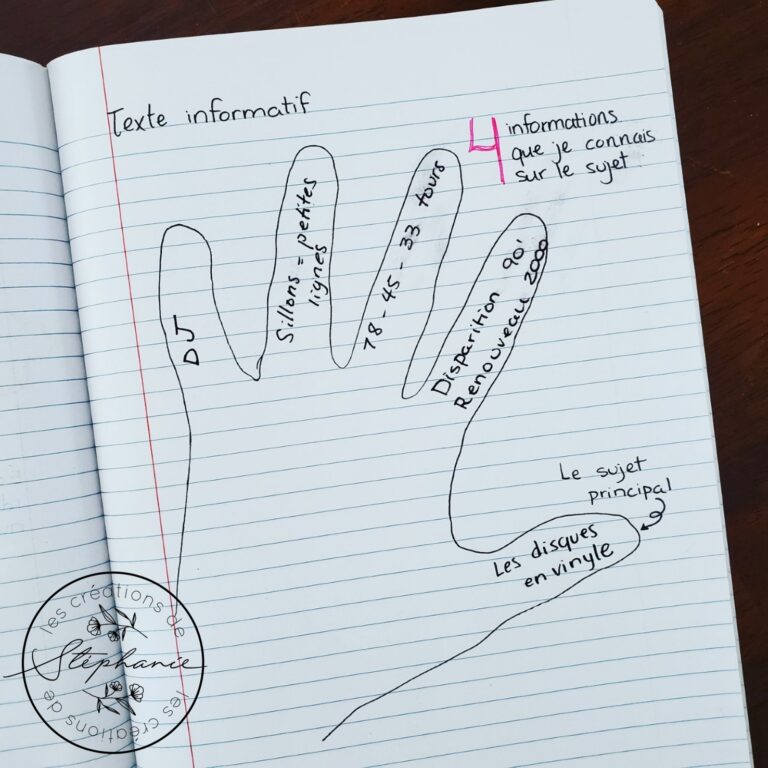 Texte informatif
4 informations
que je connais
sur le sujet.
DJ
Sillons = petites
lignes
78 - 45 - 33 tours
Disparition 90'
Renouveau 2000
Le sujet
principal
Les disques
en vinyle
les créations de
Stéphanie
les créations de